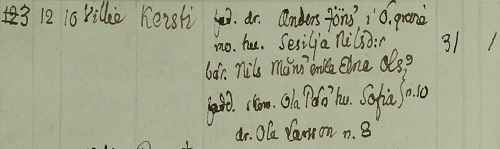 123 12 10 Villie Kersti fad. dr. Anders Jöns' i Ö. grené
mo. hu. Sesilja Nilsd:r 31 1
bär. Nils Måns' enka Elna Ols?
fadd. skom. Ola Pärs' hu. Sofia } n. 10
dr. Ola Larsson n. 8